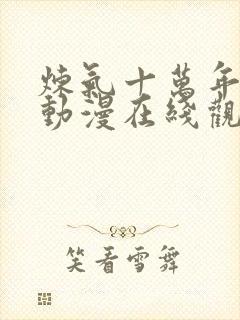 煉氣十萬年
動漫在綫觀
笑看雪舞